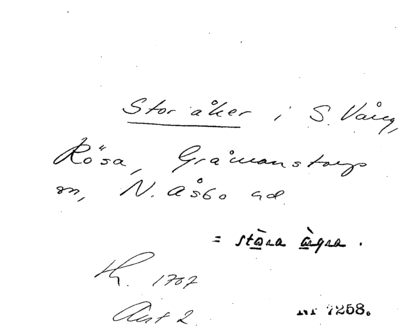 Storåker i S. Vång,
Rösa, Gråmanstorps
sn, N. Åsbo hd
= stɑ̀ra ɑ̀gra.
Lh. 1707
Nr 7258.